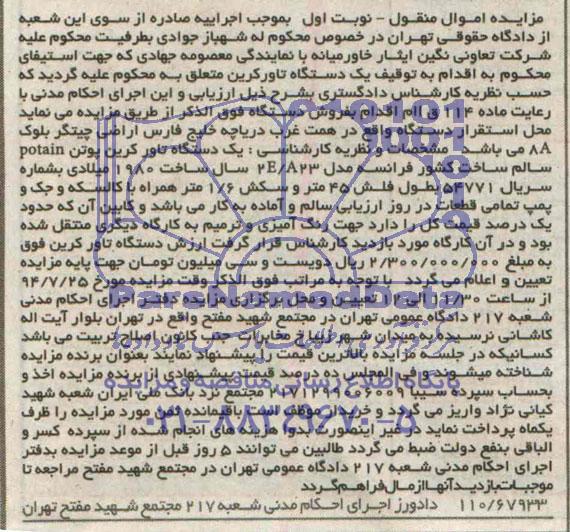 مزایده اموال منقول - نوبت اول بموجب اجراییه صادره از سوی این شعبه
از دادگاه حقوقی تهران در خصوص محکوم له شهباز جوادی بطرفیت محکوم علیه
شرکت تعاونی نگین ایثار خاورمیانه با نمایندگی معصومه جهادی که جهت استیفای
محکوم به اقدام به توقیف یک دستگاه تاورکرین متعلق به محکوم علیه گردید که
حسب نظریه کارشناس دادگستری بشرح ذیل ارزیابی و این اجرای احکام مدنی با
رعایت ماده ۱۱۴ ق اام اقدام بفروش دستگاه فوق الذکر از طریق مزایده می نماید
محل استقرار دستگاه واقع در همت غرب دریاچه خلیج فارس اراضی چیتگر بلوک
۸۸ می باشد مشخصات و نظریه کارشناسی : یک دستگاه تاور کرین پوتن potain
سالم ساخت کشور فرانسه مدل 2E/A23 سال ساخت ۱۹۸۰ میلادی بشماره
سریال ۵۴۷۷۱ بطول فلش ۴۵ متر و سکش ۱/۶ متر همراه با کالسکه و جک و
پمپ تمامی قطعات در روز ارزیابی سالم و آماده به کار می باشد و کابین آن که حدود
یک درصد قیمت کل را دارد جهت رنگ آمیزی و ترمیم به کارگاه دیگری منتقل شده
بود و در آن کارگاه مورد بازدید کارشناس قرار گرفت ارزش دستگاه تاور کرین فوق
به مبلغ ۲/۳۰۰/۰۰۰/۰۰۰ ریال دویست و سی میلیون تومان جهت پایه مزایده
تعیین و اعلام می گردد با توجه به مراتب فوق الذکر وقت مزایده مورخ ۹۴/۷/۲۵
از ساعت ۱۱/۳۰ الی ۱۲ تعیین و محل برگزاری مزایده دفتر اجرای احکام مدنی
شعبه ۲۱۷ دادگاه عمومی تهران در مجتمع شهید مفتح واقع در تهران بلوار آیت اله
کاشانی نرسیده به میدان شهر طیبا خ مخابرات جنب کانون اصلاح تربیت می باشد
کسانیکه در جلسه مزایده بالاترین قیمت را پیشنهاد نمایند بعنوان برنده مزایده
شناخته میشوند و فی المجلس ده درصد قیمت پیشنهادی از برنده مزایده اخذ و
بحساب سپرده سیبا مجتمع نزد بانک ملی ایران شعبه شهید
کیانی نژاد واریز می گردد و خریدار موظف است باقیمانده ثمن مورد مزایده را ظرف
یکماه پرداخت نماید در غیر اینصورت بدوا هزینه های انجام شده از سپرده کسر و
الباقی بنفع دولت ضبط می گردد طالبین می توانند ۵ روز قبل از موعد مزایده بدفتر
اجرای احکام مدنی شعبه ۲۱۷ دادگاه عمومی تهران در مجتمع شهید مفتح مراجعه تا
موجبات بازدید آنها از مال فراهم گردد
۱۱۰/۶۷۹۳۳ دادورز اجرای احکام مدنی شعبه ۲۱۷ مجتمع شهید مفتح تهران
پایگاه اطلاع رسانی مناقصه و مزایده
۰۲۱-۸۸۳۴۹۶۷۰-۵